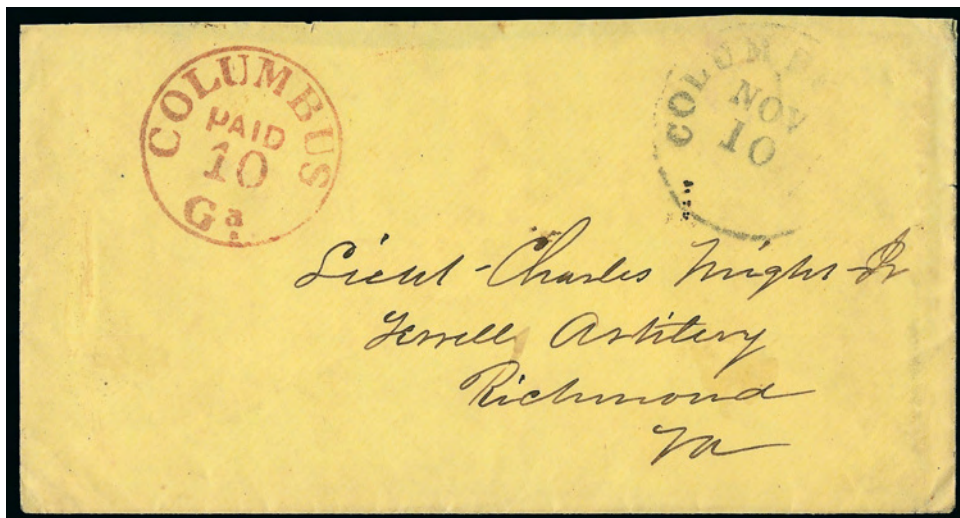 COLUMBUS
PAID
10
Ga.
COLUMB
NOV
10
Lieut - Charles Wright Jr
Terrell Artillery
Richmond
Va